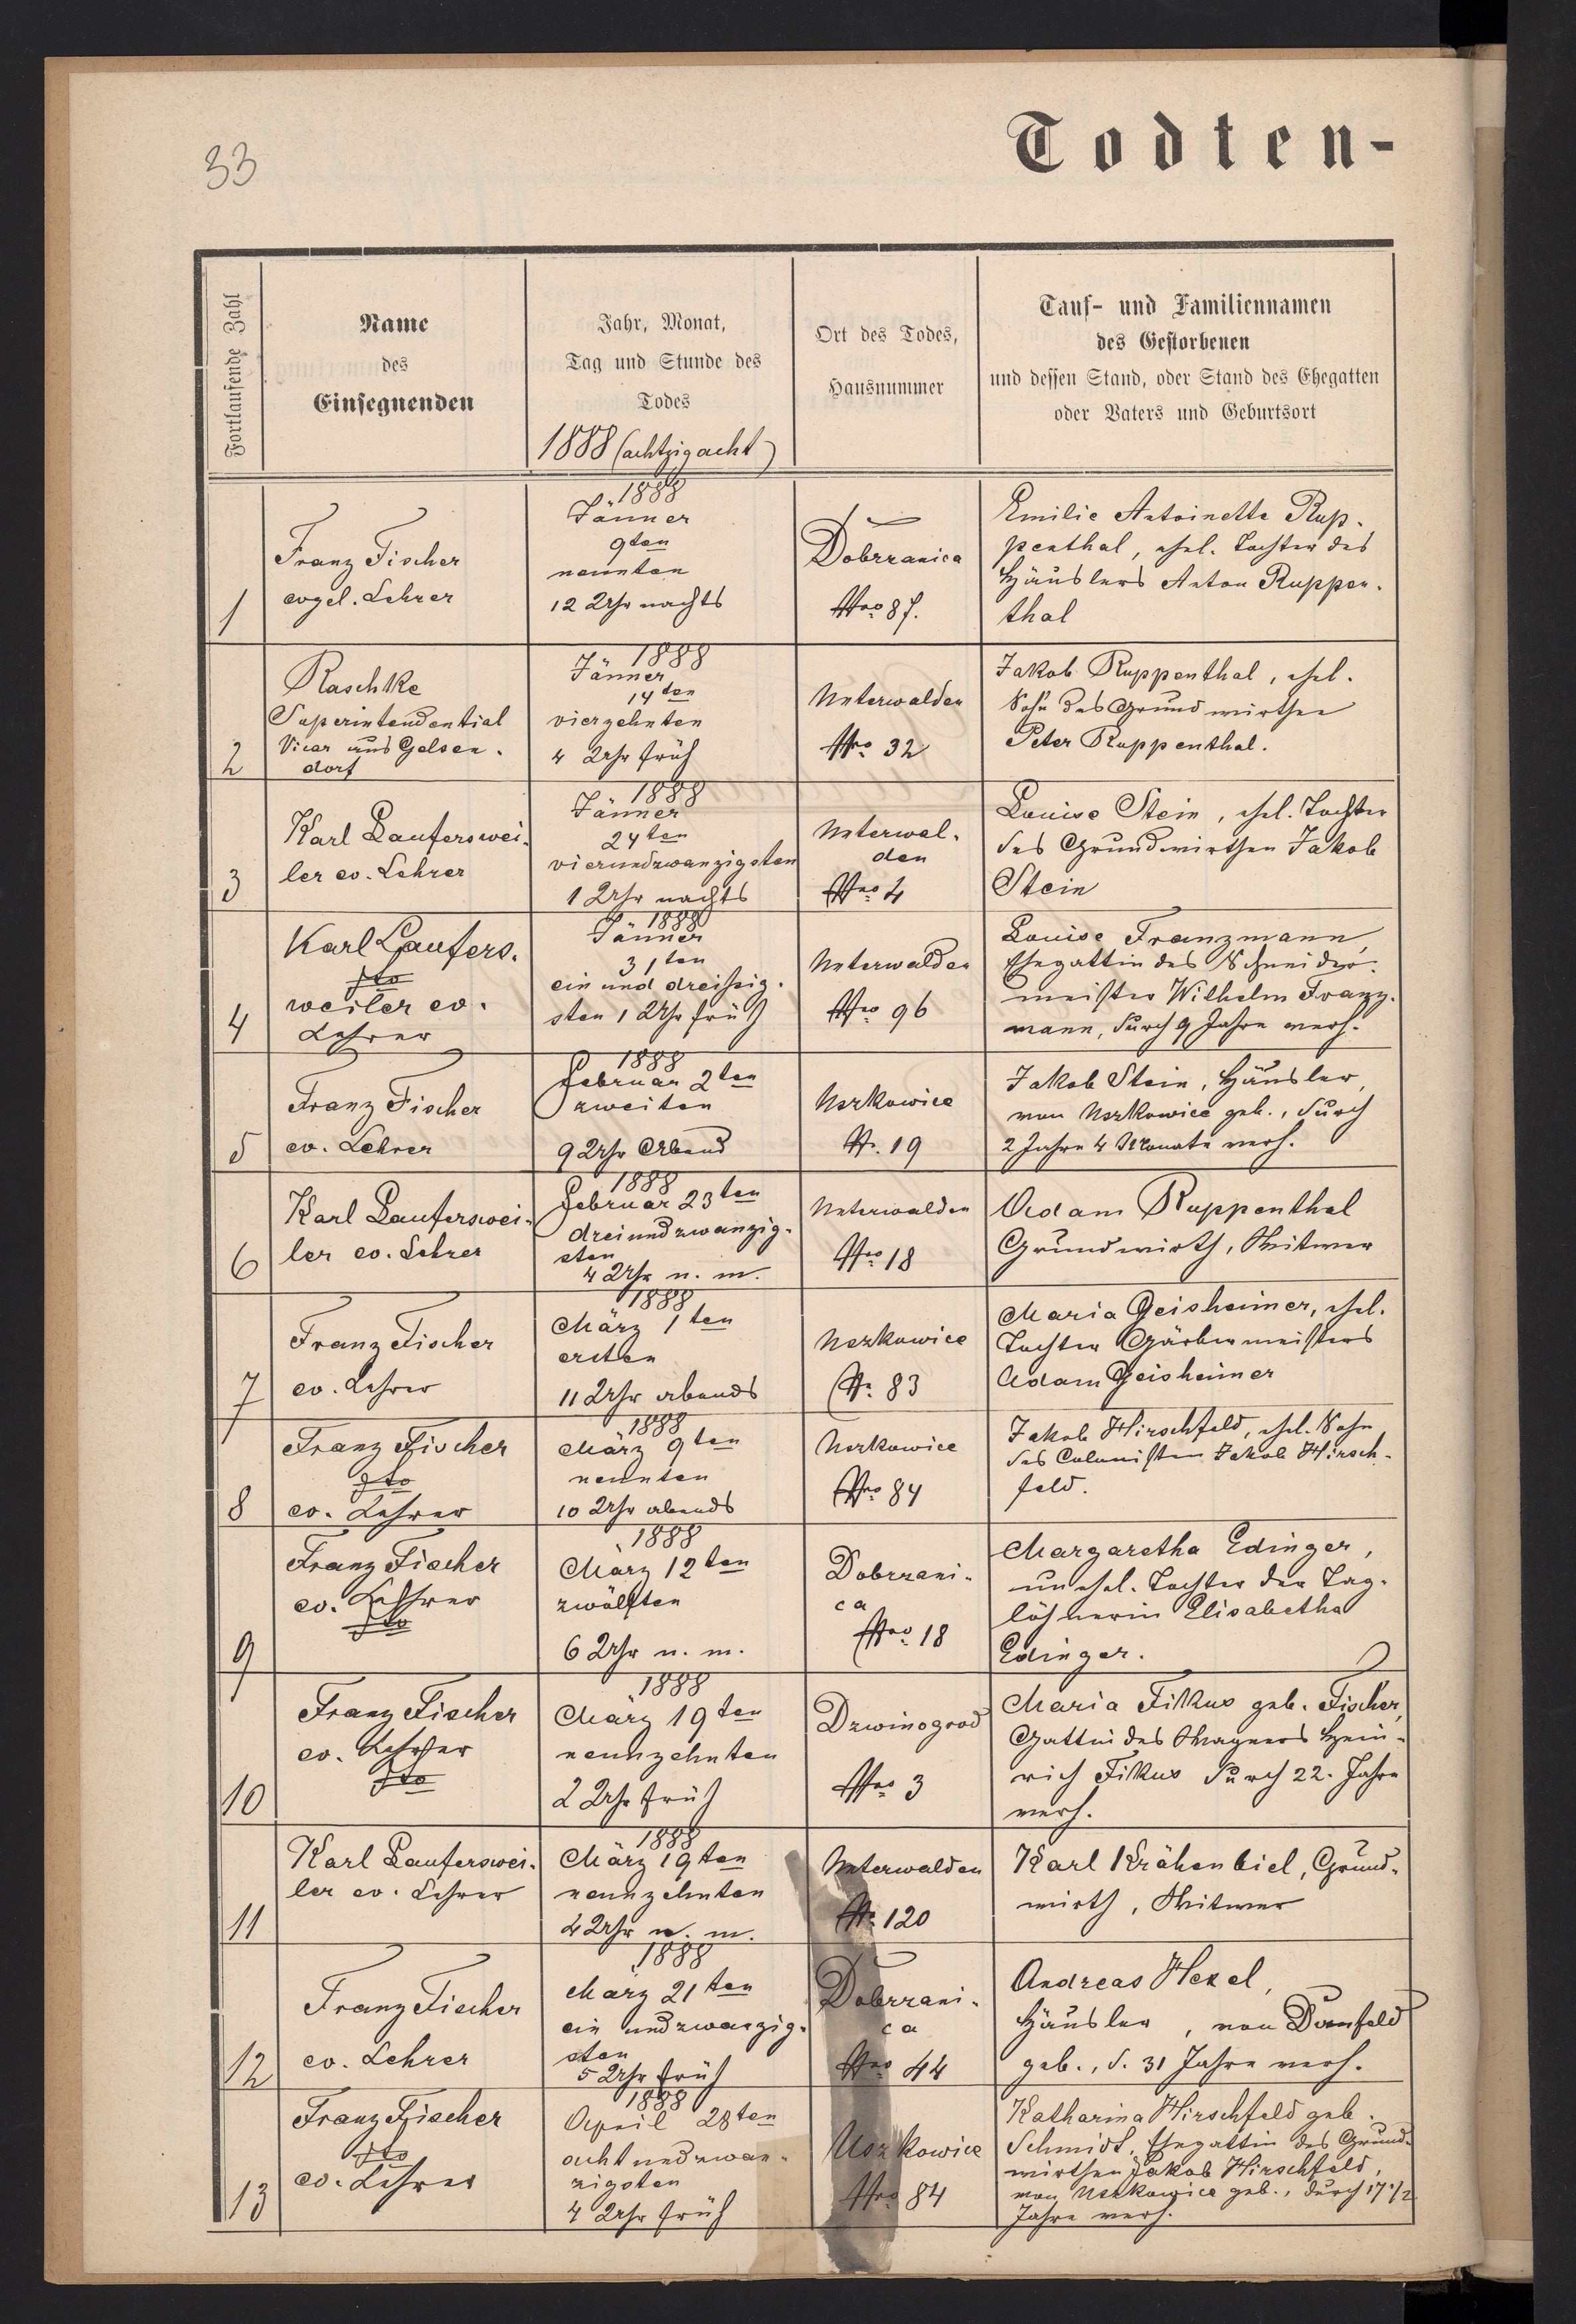 33
Todten-
Fortlaufende Zahl
Name
des
Einsegnenden
Jahr, Monat,
Tag und Stunde des
Todes
1888 (achtzigacht)
Ort des Todes,
Hausnummer
Tauf- und Familiennamen
des Gestorbenen
und dessen Stand, oder Stand des Ehegatten
oder Vaters und Geburtsort
1
Franz Fischer
evgel. Lehrer
1888
Jänner
9ten
neunten
12 Uhr nachts
Dobrzanica
Nro 87.
Emilie Antoinette Rup-
penthal, ehel. Tochter des
Häuslers Anton Ruppen-
thal
2
Raschke
Superintendential
Vicar aus Gelsen-
dorf
1888
Jänner
14ten
vierzehnten
4 Uhr früh
Unterwalden
Nro 32
Jakob Ruppenthal, ehel.
Sohn des Grundwirthen
Peter Ruppenthal.
3
Karl Lauferswei-
ler ev. Lehrer
1888
Jänner
24ten
vierundzwanzigsten
1 Uhr nachts
Unterwal-
den
Nro 4
Louise Stein, ehel. Tochter
des Grundwirthen Jakob
Stein
4
Karl Laufers-
dto
weiler ev.
Lehrer
1888
Jänner
31ten
ein und dreißig-
sten 1 Uhr früh
Unterwalden
Nro 96
Louise Franzmann,
Ehegattin des Schneider-
meister Wilhelm Franz-
mann, durch 9 Jahre verh.
5
Franz Fischer
ev. Lehrer
1888
Februar 2ten
zweiten
9 Uhr Abend
Uszkowice
N. 19
Jakob Stein, Häusler,
von Uszkowice geb., durch
2 Jahre 4 Monate verh.
6
Karl Lauferswei-
ler ev. Lehrer
1888
Februar 23ten
dreiundzwanzig-
sten
4 Uhr n. m.
Unterwalden
Nro 18
Adam Ruppenthal
Grundwirth, Witwer
7
Franz Fischer
ev. Lehrer
1888
März 1ten
ersten
11 Uhr abends
Uszkowice
N. 83
Maria Geisheimer, ehel.
Tochter Gärbermeisters
Adam Geisheimer
8
Franz Fischer
dto
ev. Lehrer
1888
März 9ten
neunten
10 Uhr abends
Uszkowice
Nro 84
Jakob Hirschfeld, ehel. Sohn
des Colonisten Jakob Hirsch-
feld.
9
Franz Fischer
ev. Lehrer
dto
1888
März 12ten
zwölften
6 Uhr n. m.
Dobrzani-
ca
Nro 18
Margaretha Edinger,
unehel. Tochter der Tag-
löhnerin Elisabetha
Edinger.
10
Franz Fischer
ev. Lehrer
dto
1888
März 19ten
neunzehnten
2 Uhr früh
Dzwinogrod
Nro 3
Maria Fikus geb. Fischer,
Gattin des Wagners Hein-
rich Fikus durch 22. Jahre
verh.
11
Karl Lauferswei-
ler ev. Lehrer
1888
März 19ten
neunzehnten
4 Uhr n. m.
Unterwalden
N. 120
Karl Krähenbiel, Grund-
wirth, Witwer
12
Franz Fischer
ev. Lehrer
1888
März 21ten
ein undzwanzig-
sten
5 Uhr früh
Dobrzani-
ca
Nro 44
Andreas Hexel,
Häusler, von Dornfeld
geb., d. 31 Jahre verh.
13
Franz Fischer
dto
ev. Lehrer
1888
April 28ten
acht undzwan-
zigsten
4 Uhr früh
Uszkowice
Nro 84
Katharina Hirschfeld geb.
Schmidt, Ehegattin des Grund-
wirthen Jakob Hirschfeld,
von Uszkowice geb., durch 17 1/2
Jahre verh.